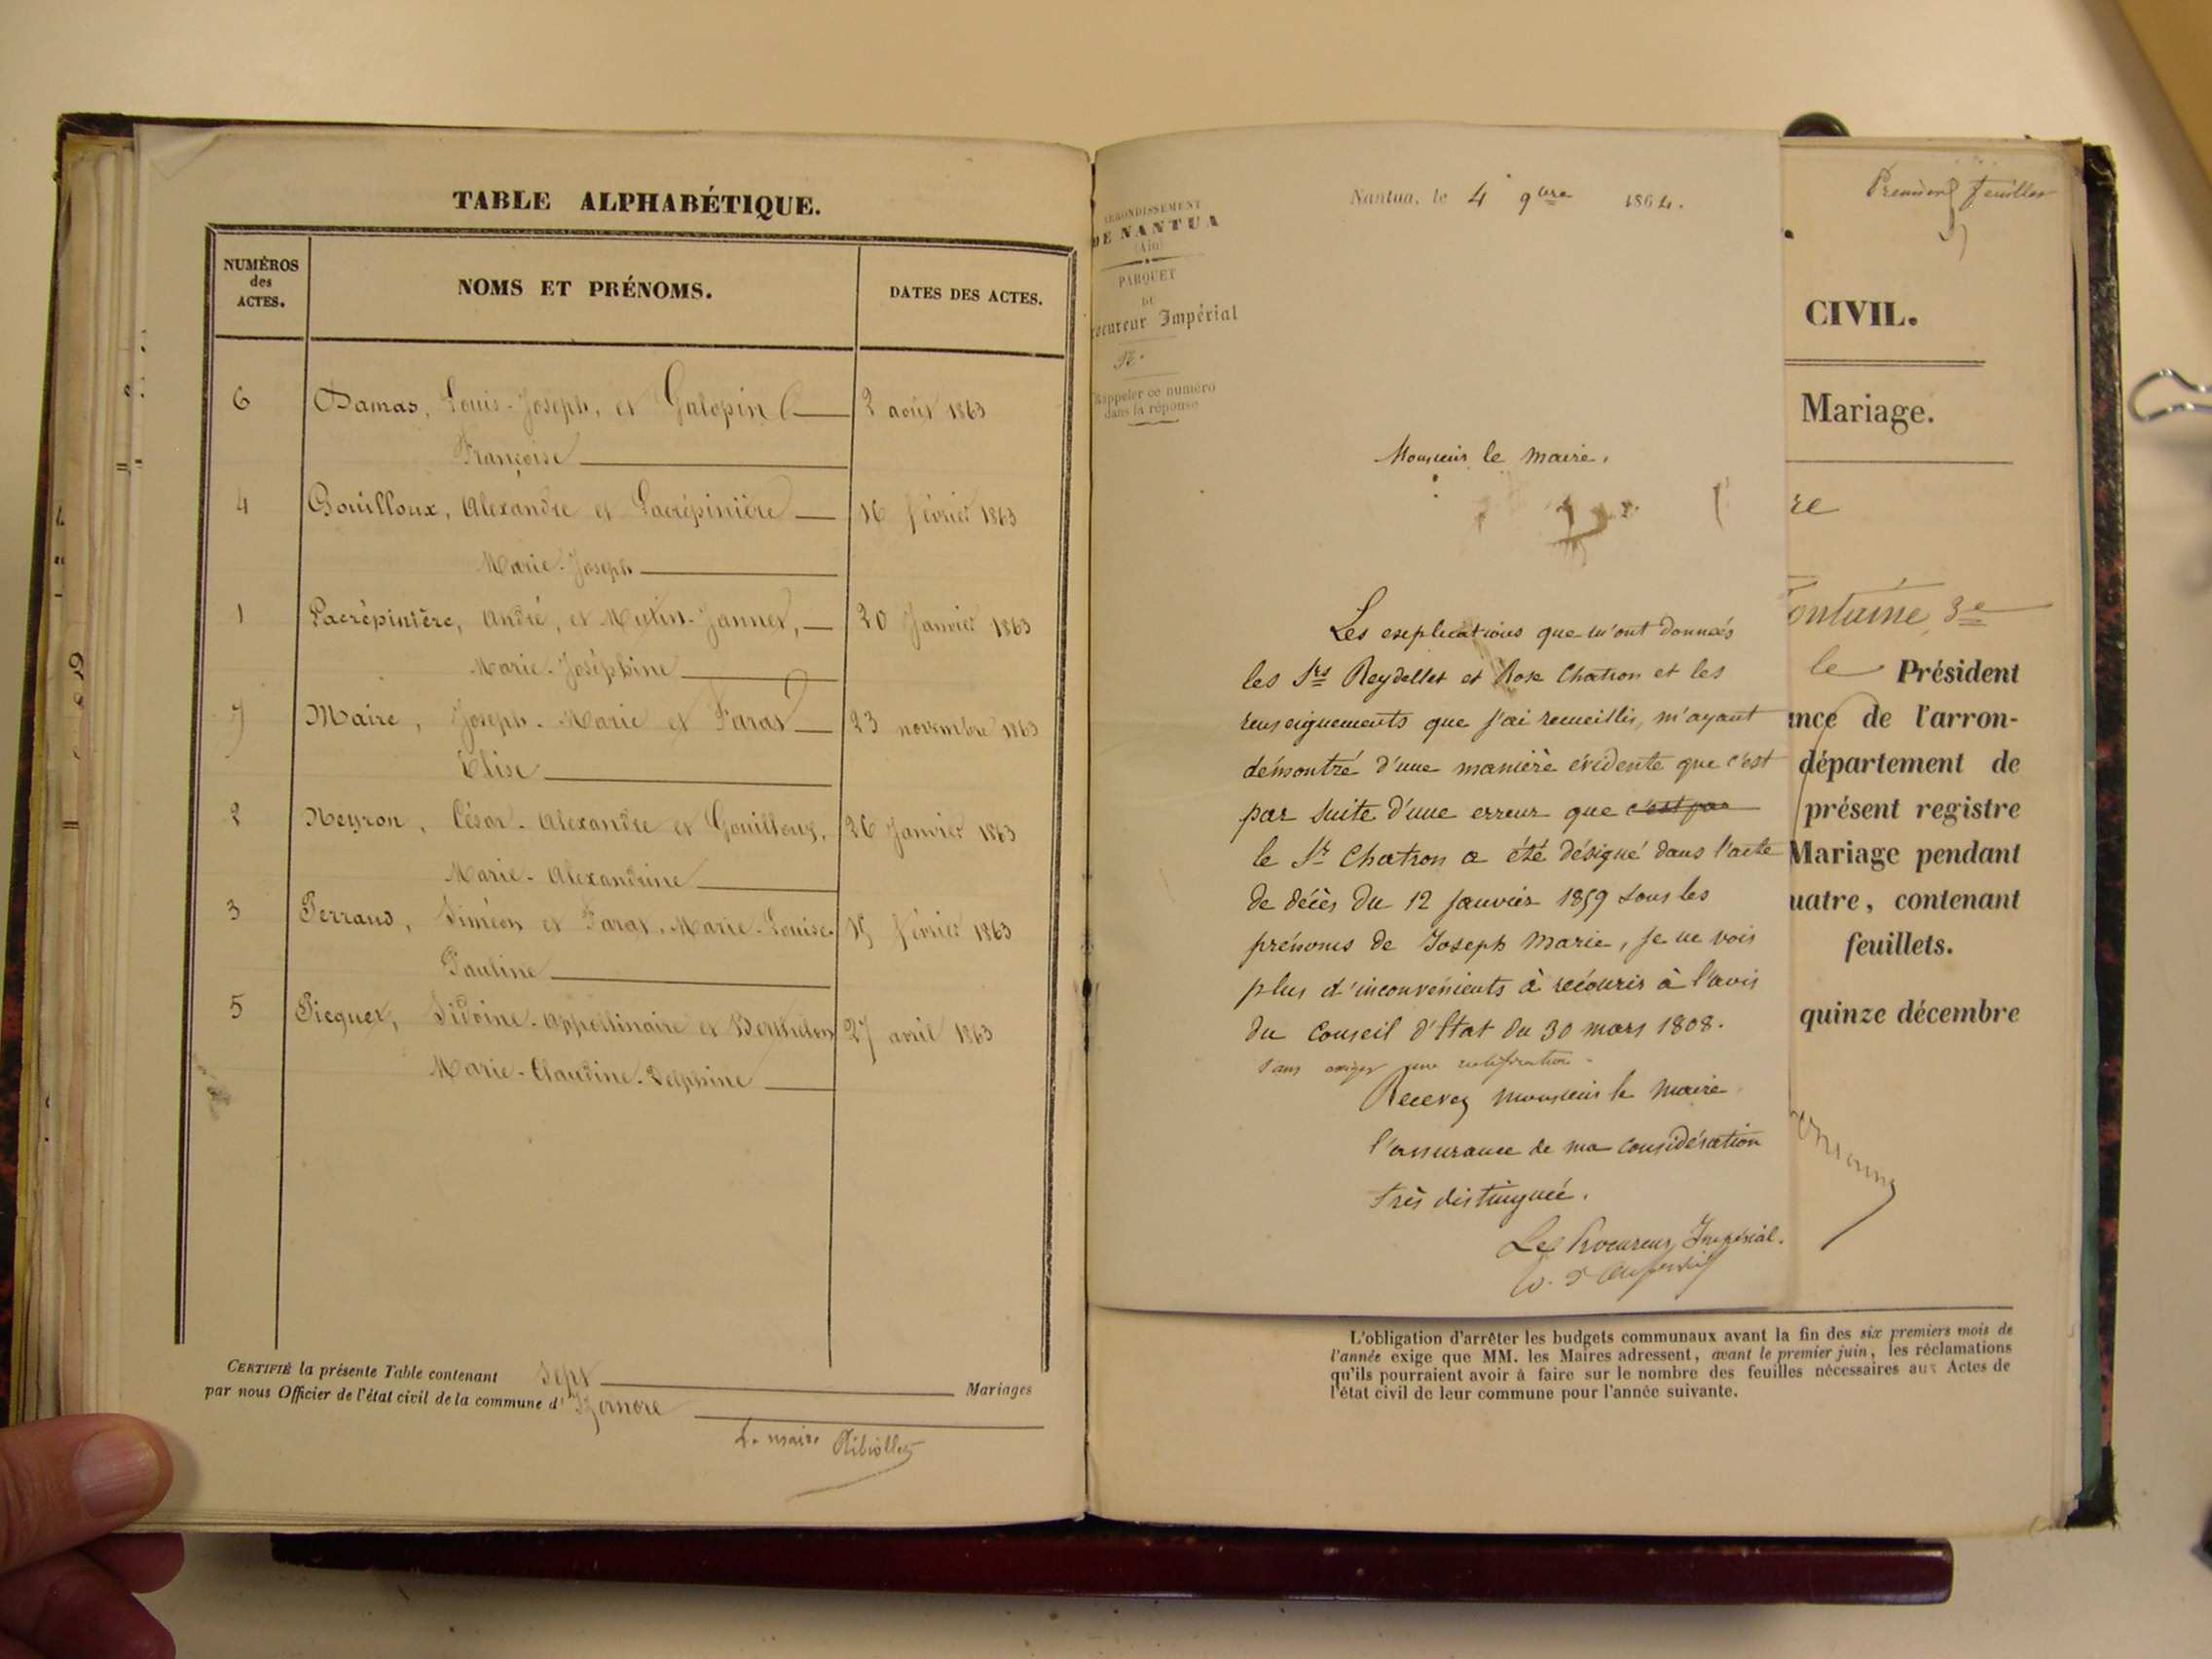 TABLE ALPHABÉTIQUE.
NUMÉROS des ACTES.
NOMS ET PRÉNOMS.
DATES DES ACTES.
6 Damas, Louis-Joseph, et Galopin 2 août 1863
Françoise
4 Gouilloux, Alexandre et Lacrépinière 16 février 1863
Marie-Joseph
1 Lacrépinière, André, et Mutin-Jannet, 20 Janvier 1863
Marie-Joséphine
7 Maire, Joseph-Marie et Faras 23 novembre 1863
Elise
2 Neyron, César-Alexandre et Gouilloux, 26 Janvier 1863
Marie-Alexandrine
3 Perraud, Siméon et Faras, Marie-Louise- février 1863
Pauline
5 Picquet, Sidoine-Appollinaire et 27 avril 1863
Marie-Claudine-Delphine
CERTIFIÉ la présente Table contenant sept Mariages
par nous Officier de l'état civil de la commune d'Izernore
Le maire
ARRONDISSEMENT
DE NANTUA
(Ain)
PARQUET
DU
rocureur Impérial
N.
Rappeler ce numéro
dans la réponse
Nantua, le 4 9bre 1864.
Monsieur le Maire,
Les explications que m'ont données
les Srs Reydellet et Rose Chatron et les
renseignements que j'ai recueillis, m'ayant
démontré d'une manière évidente que c'est
par suite d'une erreur que c'est par
le Sr Chatron a été désigné dans l'acte
de décès du 12 Janvier 1859 sous les
prénoms de Joseph Marie, je ne vois
plus d'inconvénients à recourir à l'avis
du Conseil d'Etat du 30 mars 1808.
sans exiger une rectification.
Recevez Monsieur le Maire
l'assurance de ma considération
très distinguée.
Le Procureur Impérial.
Premier feuillet
CIVIL.
Mariage.
re
ontaine 3e
le Président
ance de l'arron-
département de
présent registre
Mariage pendant
uatre, contenant
feuillets.
quinze décembre
L'obligation d'arrêter les budgets communaux avant la fin des six premiers mois de
l'année exige que MM. les Maires adressent, avant le premier juin, les réclamations
qu'ils pourraient avoir à faire sur le nombre des feuilles nécessaires aux Actes de
l'état civil de leur commune pour l'année suivante.